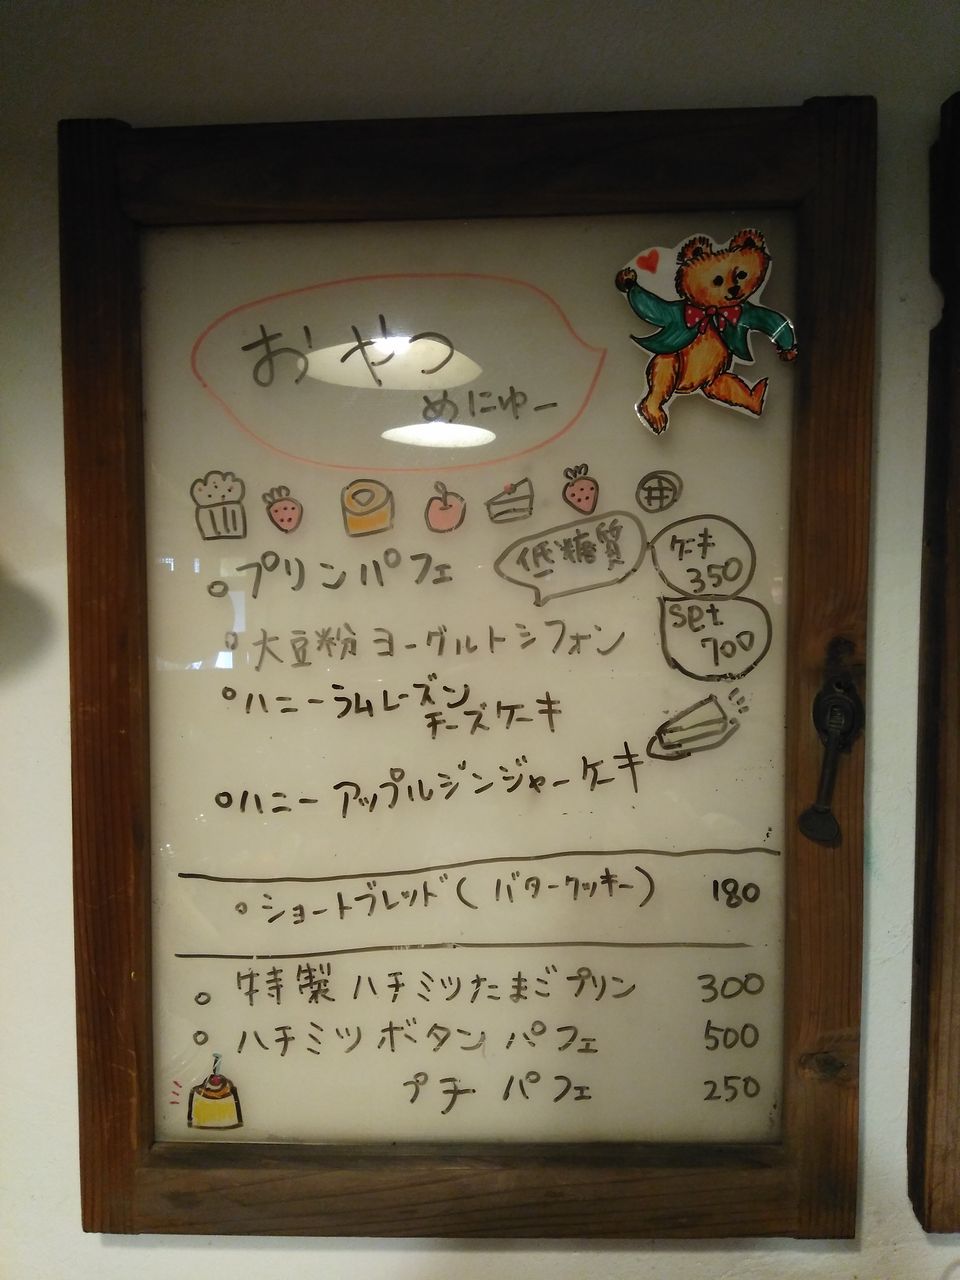 おやつ
めにゅー
プリンパフェ
低糖質
ケーキ
350
set
700
大豆粉ヨーグルトシフォン
ハニーラムレーズン
チーズケーキ
ハニーアップルジンジャーケーキ
ショートブレッド(バタークッキー) 180
特製ハチミツたまごプリン 300
ハチミツボタンパフェ 500
プチパフェ 250